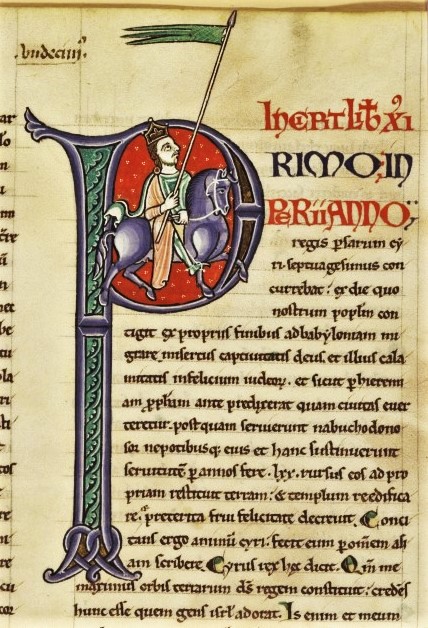 .vndecim'.
INCIPIT LIB̅ XI
PRIMO; IN
PERII ANNO;
regis ꝑsarum cy
ri. septuagesimus con
currebat: ex die quo
nostrum popl̅m con
tigit ex propriis finibus ad babyloniam mi
grare, misertus captiuitatis deus et illius cala
mitatis infelicium iudeoꝝ. et sicut ꝑ hieremi
am ꝓph̅am ante predixerat quam ciuitas euer
teretur. postquam seruierunt nabuchodono
sor nepotibusq; eius et hanc sustinuerunt
seruitutē ꝑ annos fere .lxx. rursus eos ad pro
priam restituit terram: & templum reedifica
re, & preterita frui felicitate decreuit. Conci
tans ergo animū cyri: fecit eum ꝑ om̅em asi
am scribere. Cyrus rex hec dicit. Qm̅ me
maximus orbis terrarum ds̅ regem constituit: credens
hunc esse quem gens isrl̅ adorat. Is enim et meum